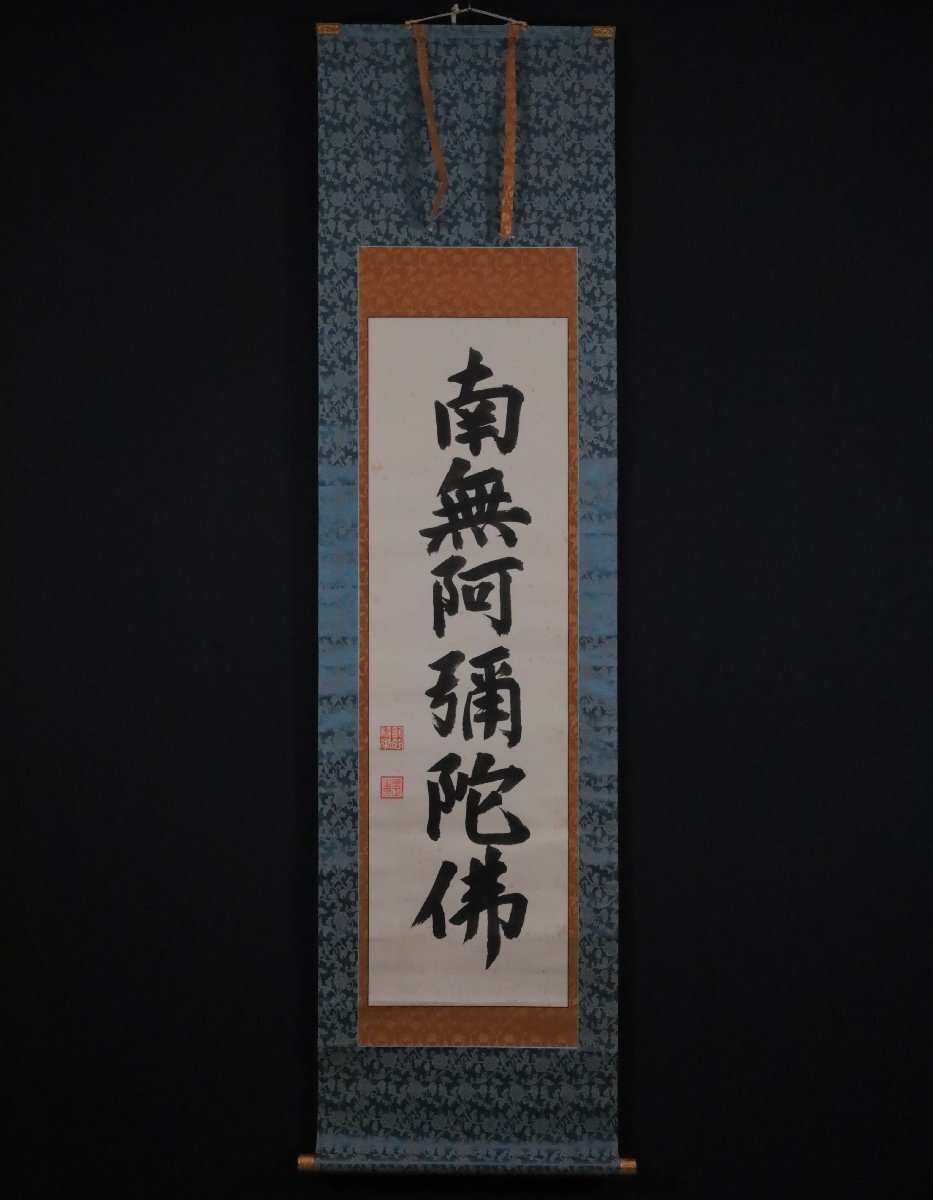 南無阿彌陀佛